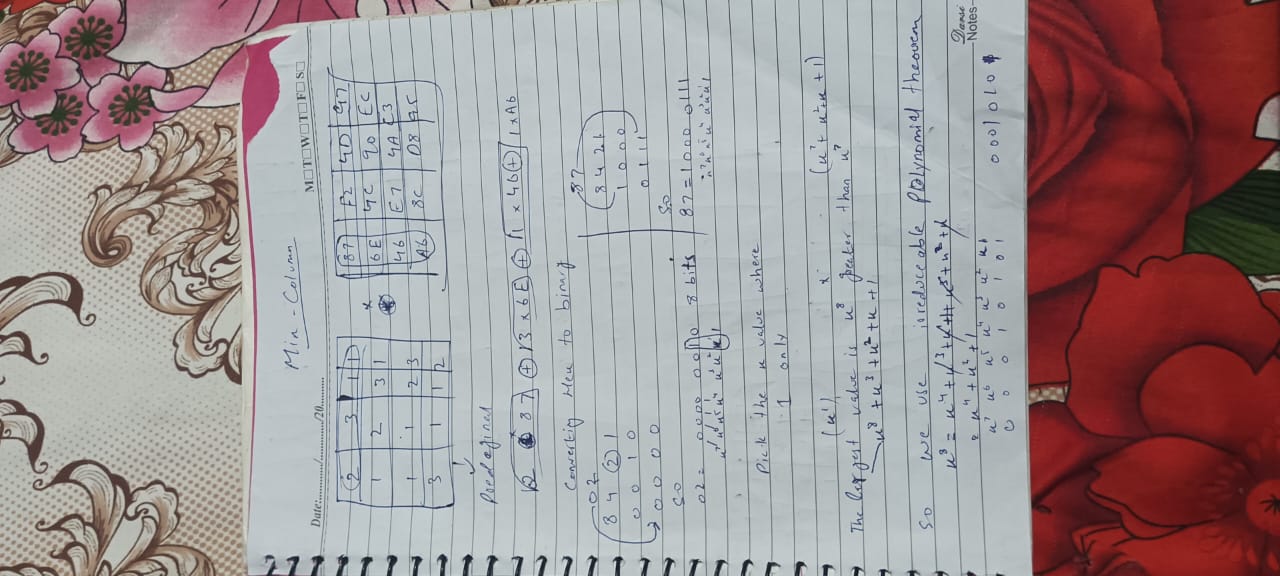 Mix - Column
Date:............/............/20..........
M□T□W□T□F□S□
2 3 1 1
1 2 3 1
1 1 2 3
3 1 1 2
×
87 F2 4D 97
6E 4C 90 EC
46 E7 4A C3
A6 8C D8 95
Predefined
2 87 ⊕ 3 x 6E ⊕ 1 x 46 ⊕ 1 x A6
Converting Hex to binary
02
8 4 2 1
0 0 1 0
0 0 0 0
So
02 = 0000 0010 8 bits
x⁷ x⁶ x⁵ x⁴ x³ x² x 1
87
8 4 2 1
1 0 0 0
0 1 1 1
So
87 = 1000 0111
x⁷ x⁶ x⁵ x⁴ x³ x² x 1
Pick the x value where
1 only
(x¹) x (x⁷ + x² + x + 1)
The largest value is x⁸ greater than x⁷
x⁸ + x³ + x² + x + 1
So we use irreduceable Polynomial theorem
x⁸ = x⁴ + x³ + x + 1 + x³ + x² + x
= x⁴ + x² + 1
x⁷ x⁶ x⁵ x⁴ x³ x² x 1
0 0 0 1 0 1 0 1
0001010
Darsi
Notes